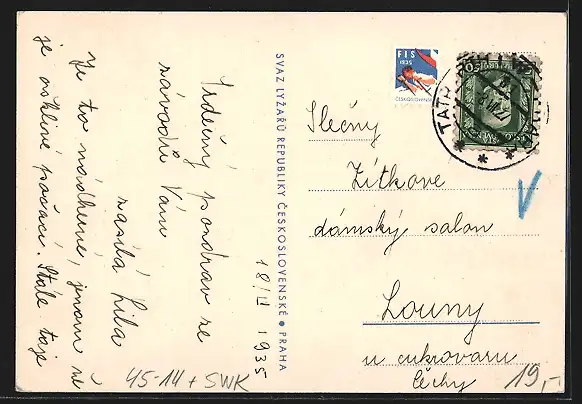 Srdečný pozdrav ze
závodů Vám
zasílá Lída
Je to nádherné, jenom že
je ošklivé počasí. Stále taje
18/II 1935
SVAZ LYŽAŘŮ REPUBLIKY ČESKOSLOVENSKÉ • PRAHA
FIS
1935
ČESKOSLOVENSKO
Slečny
Zítkove
dámský salon
Louny
u cukrovaru
Čechy
45-14 + SWK
19,-